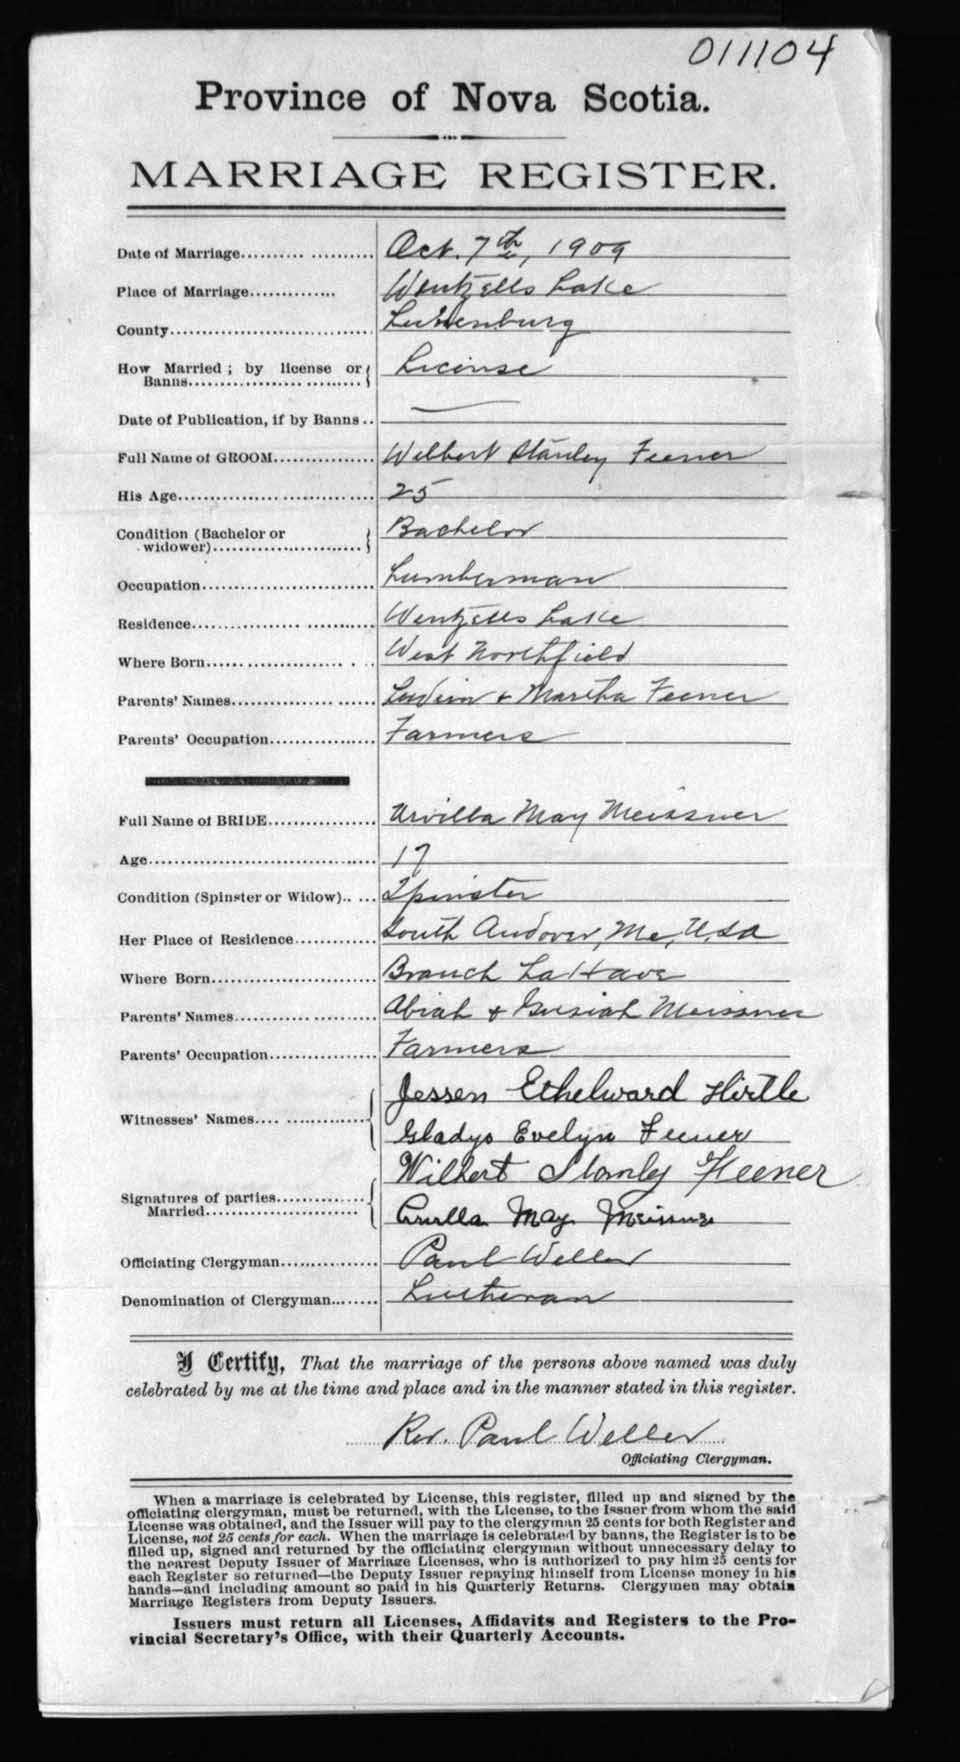 011104
Province of Nova Scotia.
MARRIAGE REGISTER.
Date of Marriage.......... ........... Oct. 7th, 1909
Place of Marriage.............. Wentzells Lake
County................................ Lunenburg
How Married ; by license or
Banns............................ License
Date of Publication, if by Banns .. —
Full Name of GROOM................ Wilbert Stanley Feener
His Age............................... 25
Condition (Bachelor or
widower)........................ Bachelor
Occupation........................... Lumberman
Residence................ ........... Wentzells Lake
Where Born...................... . . . West Northfield
Parents' Names................. ...... & Martha Feener
Parents' Occupation................. Farmers
Full Name of BRIDE................. Urvilla May Meissner
Age.................................... 17
Condition (Spinster or Widow).. ... Spinster
Her Place of Residence............. South Andover, Me, U.S.A
Where Born........................... Branch LaHave
Parents' Names............... ......... Abiah & Meissner
Parents' Occupation................. Farmers
Witnesses' Names.... ............. Jessen Ethelward Hirtle
Gladys Evelyn Feener
Signatures of parties..............
Married........................ Wilbert Stanly Feener
May Meissner
Officiating Clergyman................ Paul Weller
Denomination of Clergyman........ Lutheran
I Certify, That the marriage of the persons above named was duly
celebrated by me at the time and place and in the manner stated in this register.
Rev. Paul Weller
Officiating Clergyman.
When a marriage is celebrated by License, this register, filled up and signed by the
officiating clergyman, must be returned, with the License, to the Issuer from whom the said
License was obtained, and the Issuer will pay to the clergyman 25 cents for both Register and
License, not 25 cents for each. When the marriage is celebrated by banns, the Register is to be
filled up, signed and returned by the officiating clergyman without unnecessary delay to
the nearest Deputy Issuer of Marriage Licenses, who is authorized to pay him 25 cents for
each Register so returned—the Deputy Issuer repaying himself from License money in his
hands—and including amount so paid in his Quarterly Returns. Clergymen may obtain
Marriage Registers from Deputy Issuers.
Issuers must return all Licenses, Affidavits and Registers to the Pro-
vincial Secretary's Office, with their Quarterly Accounts.